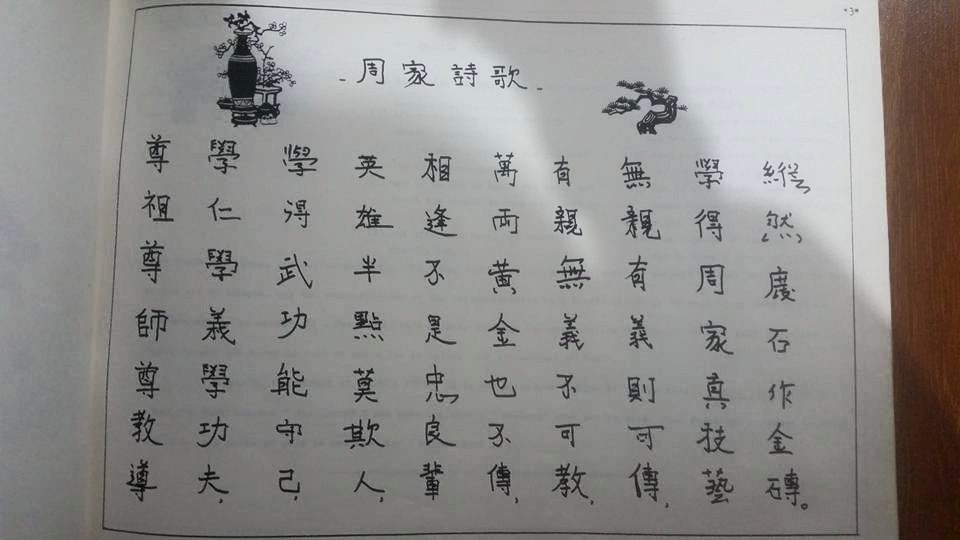 •3•
-周家詩歌-
尊祖尊師尊教導
學仁學義學功夫,
學得武功能守己,
英雄半點莫欺人,
相逢不是忠良輩
萬両黃金也不傳,
有親無義不可教,
無親有義則可傳,
學得周家真技藝
縱然石作金磚。